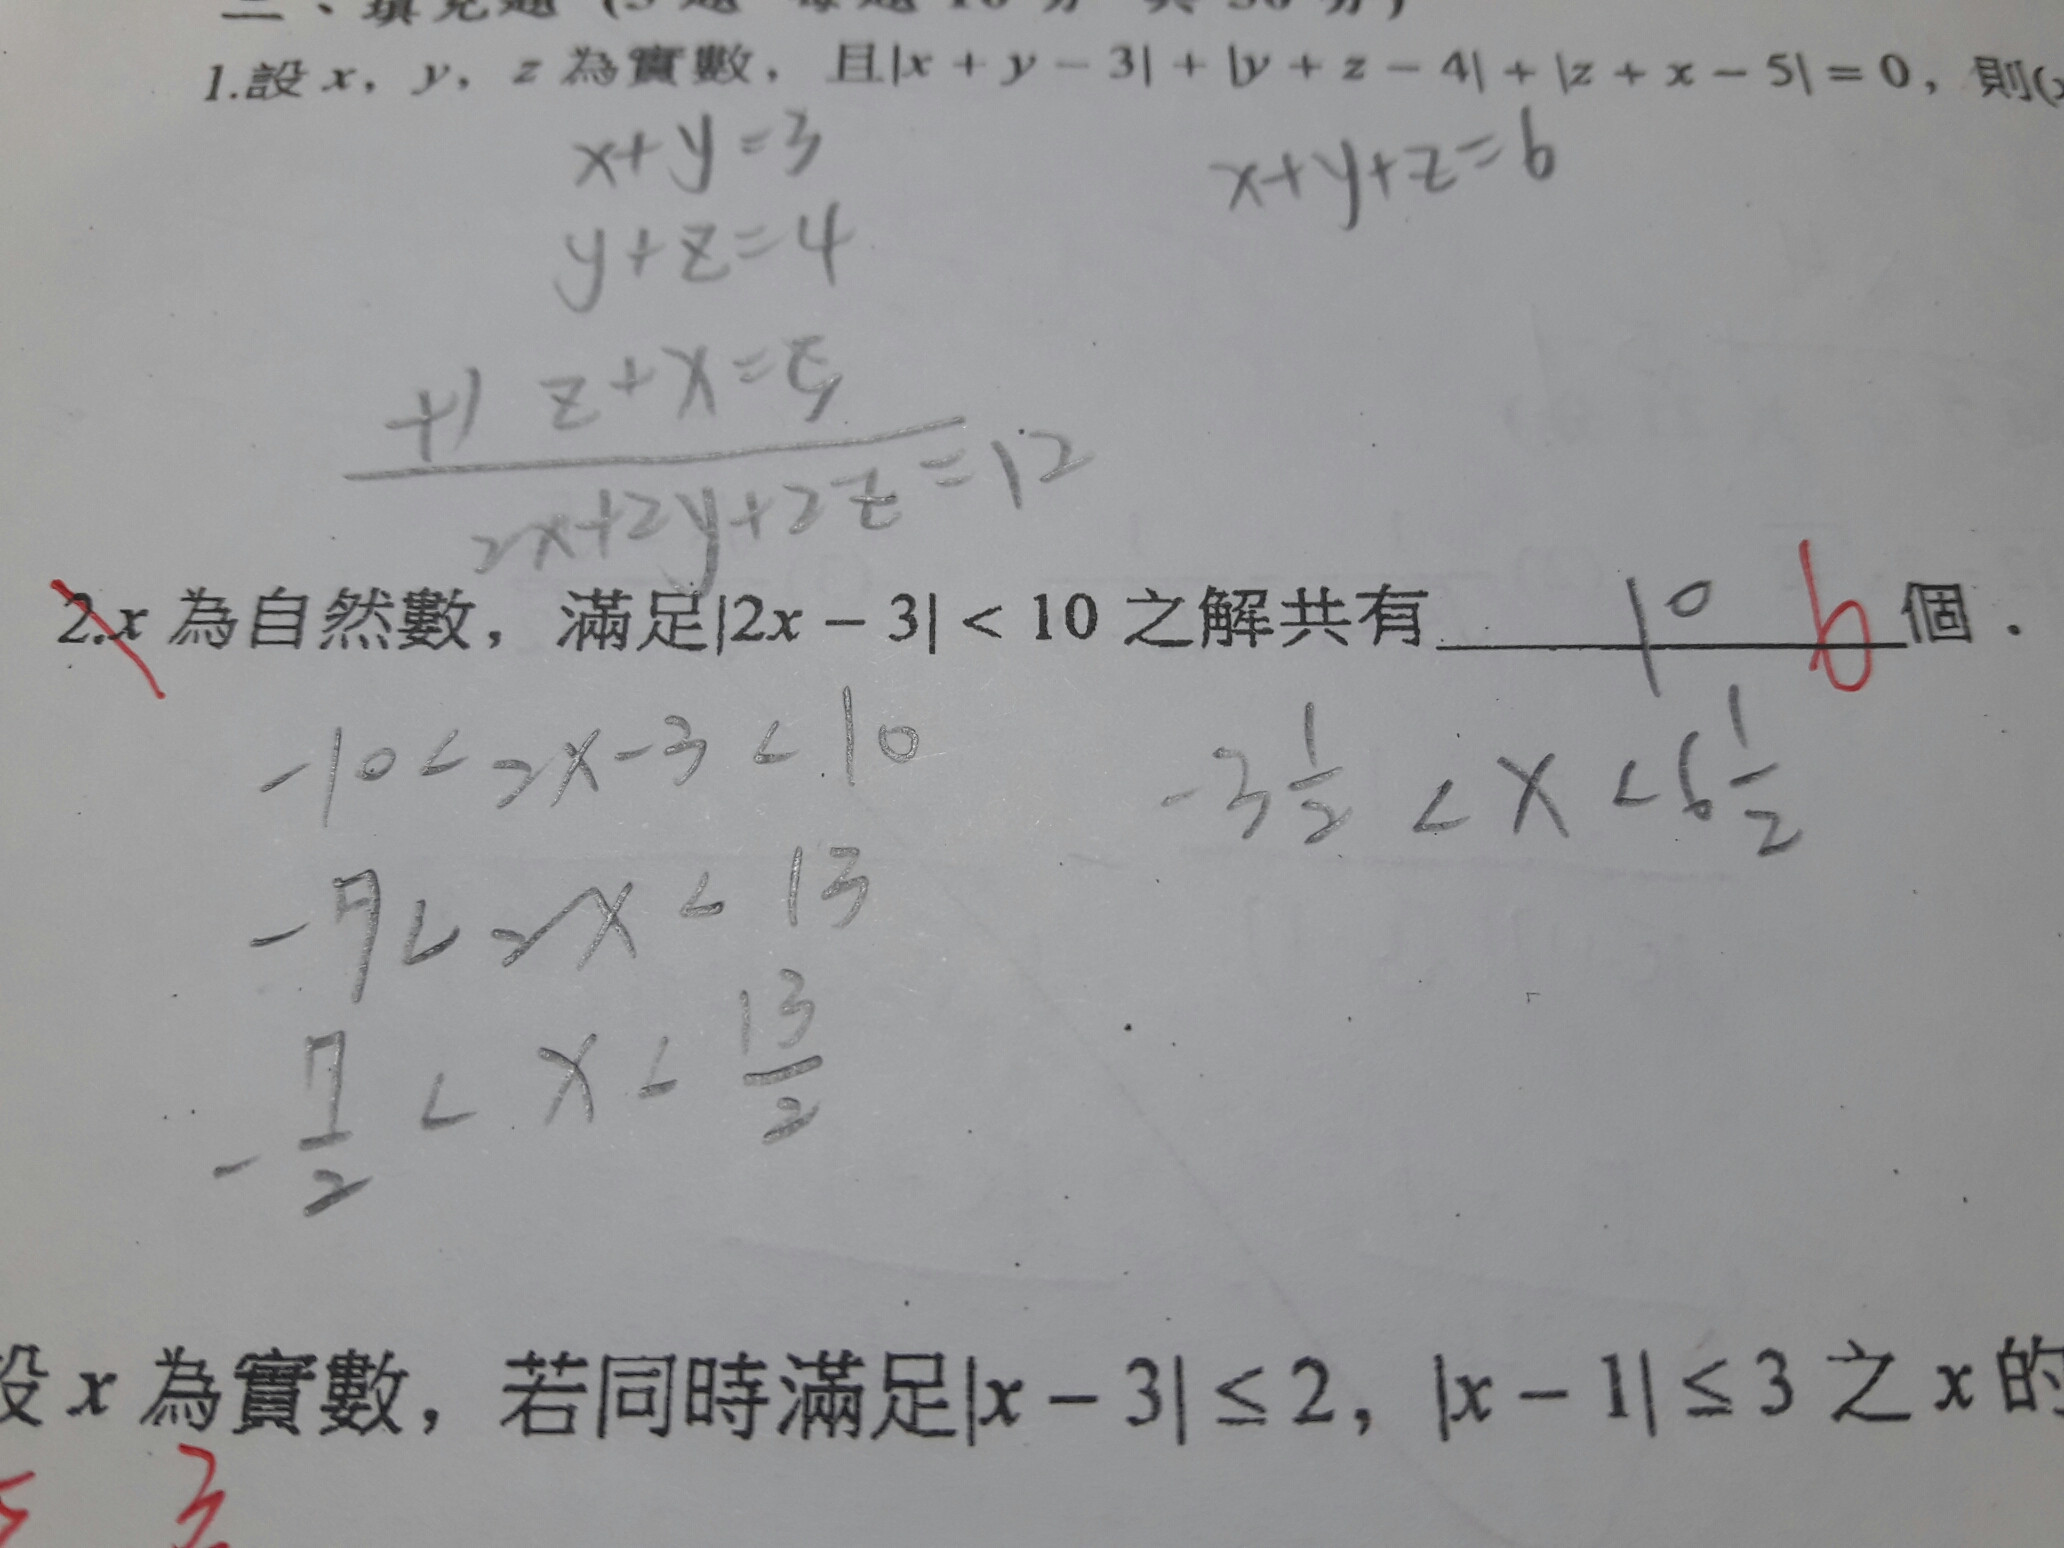 二、填充題 (3 題 每題 10 分 共 30 分)
1.設 x，y，z 為實數，且|x + y − 3| + |y + z − 4| + |z + x − 5| = 0，則(x
x+y=3
x+y+z=6
y+z=4
+) z+x=5
2x+2y+2z=12
2.x 為自然數，滿足|2x − 3| < 10 之解共有 10 6 個．
-10<2x-3<10
-3 1/2 < x < 6 1/2
-7<2x<13
-7/2 < x < 13/2
設 x 為實數，若同時滿足|x − 3| ≤ 2，|x − 1| ≤ 3 之 x 的
3